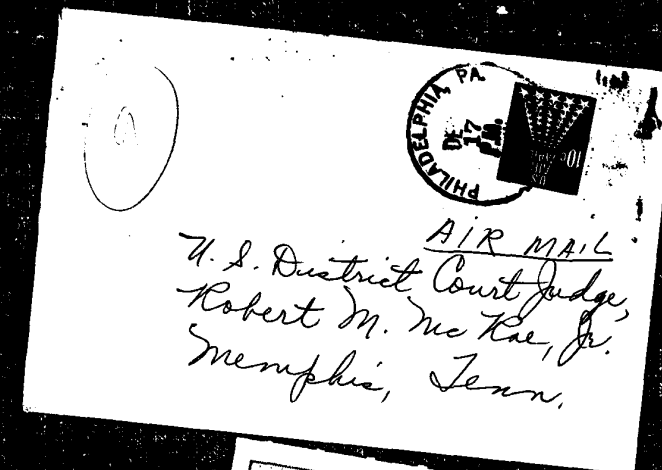 PHILADELPHIA, PA.
DE
17
P.M.
10c
AIR MAIL
U. S. District Court Judge,
Robert M. Mc Rae, Jr.
Memphis, Tenn.